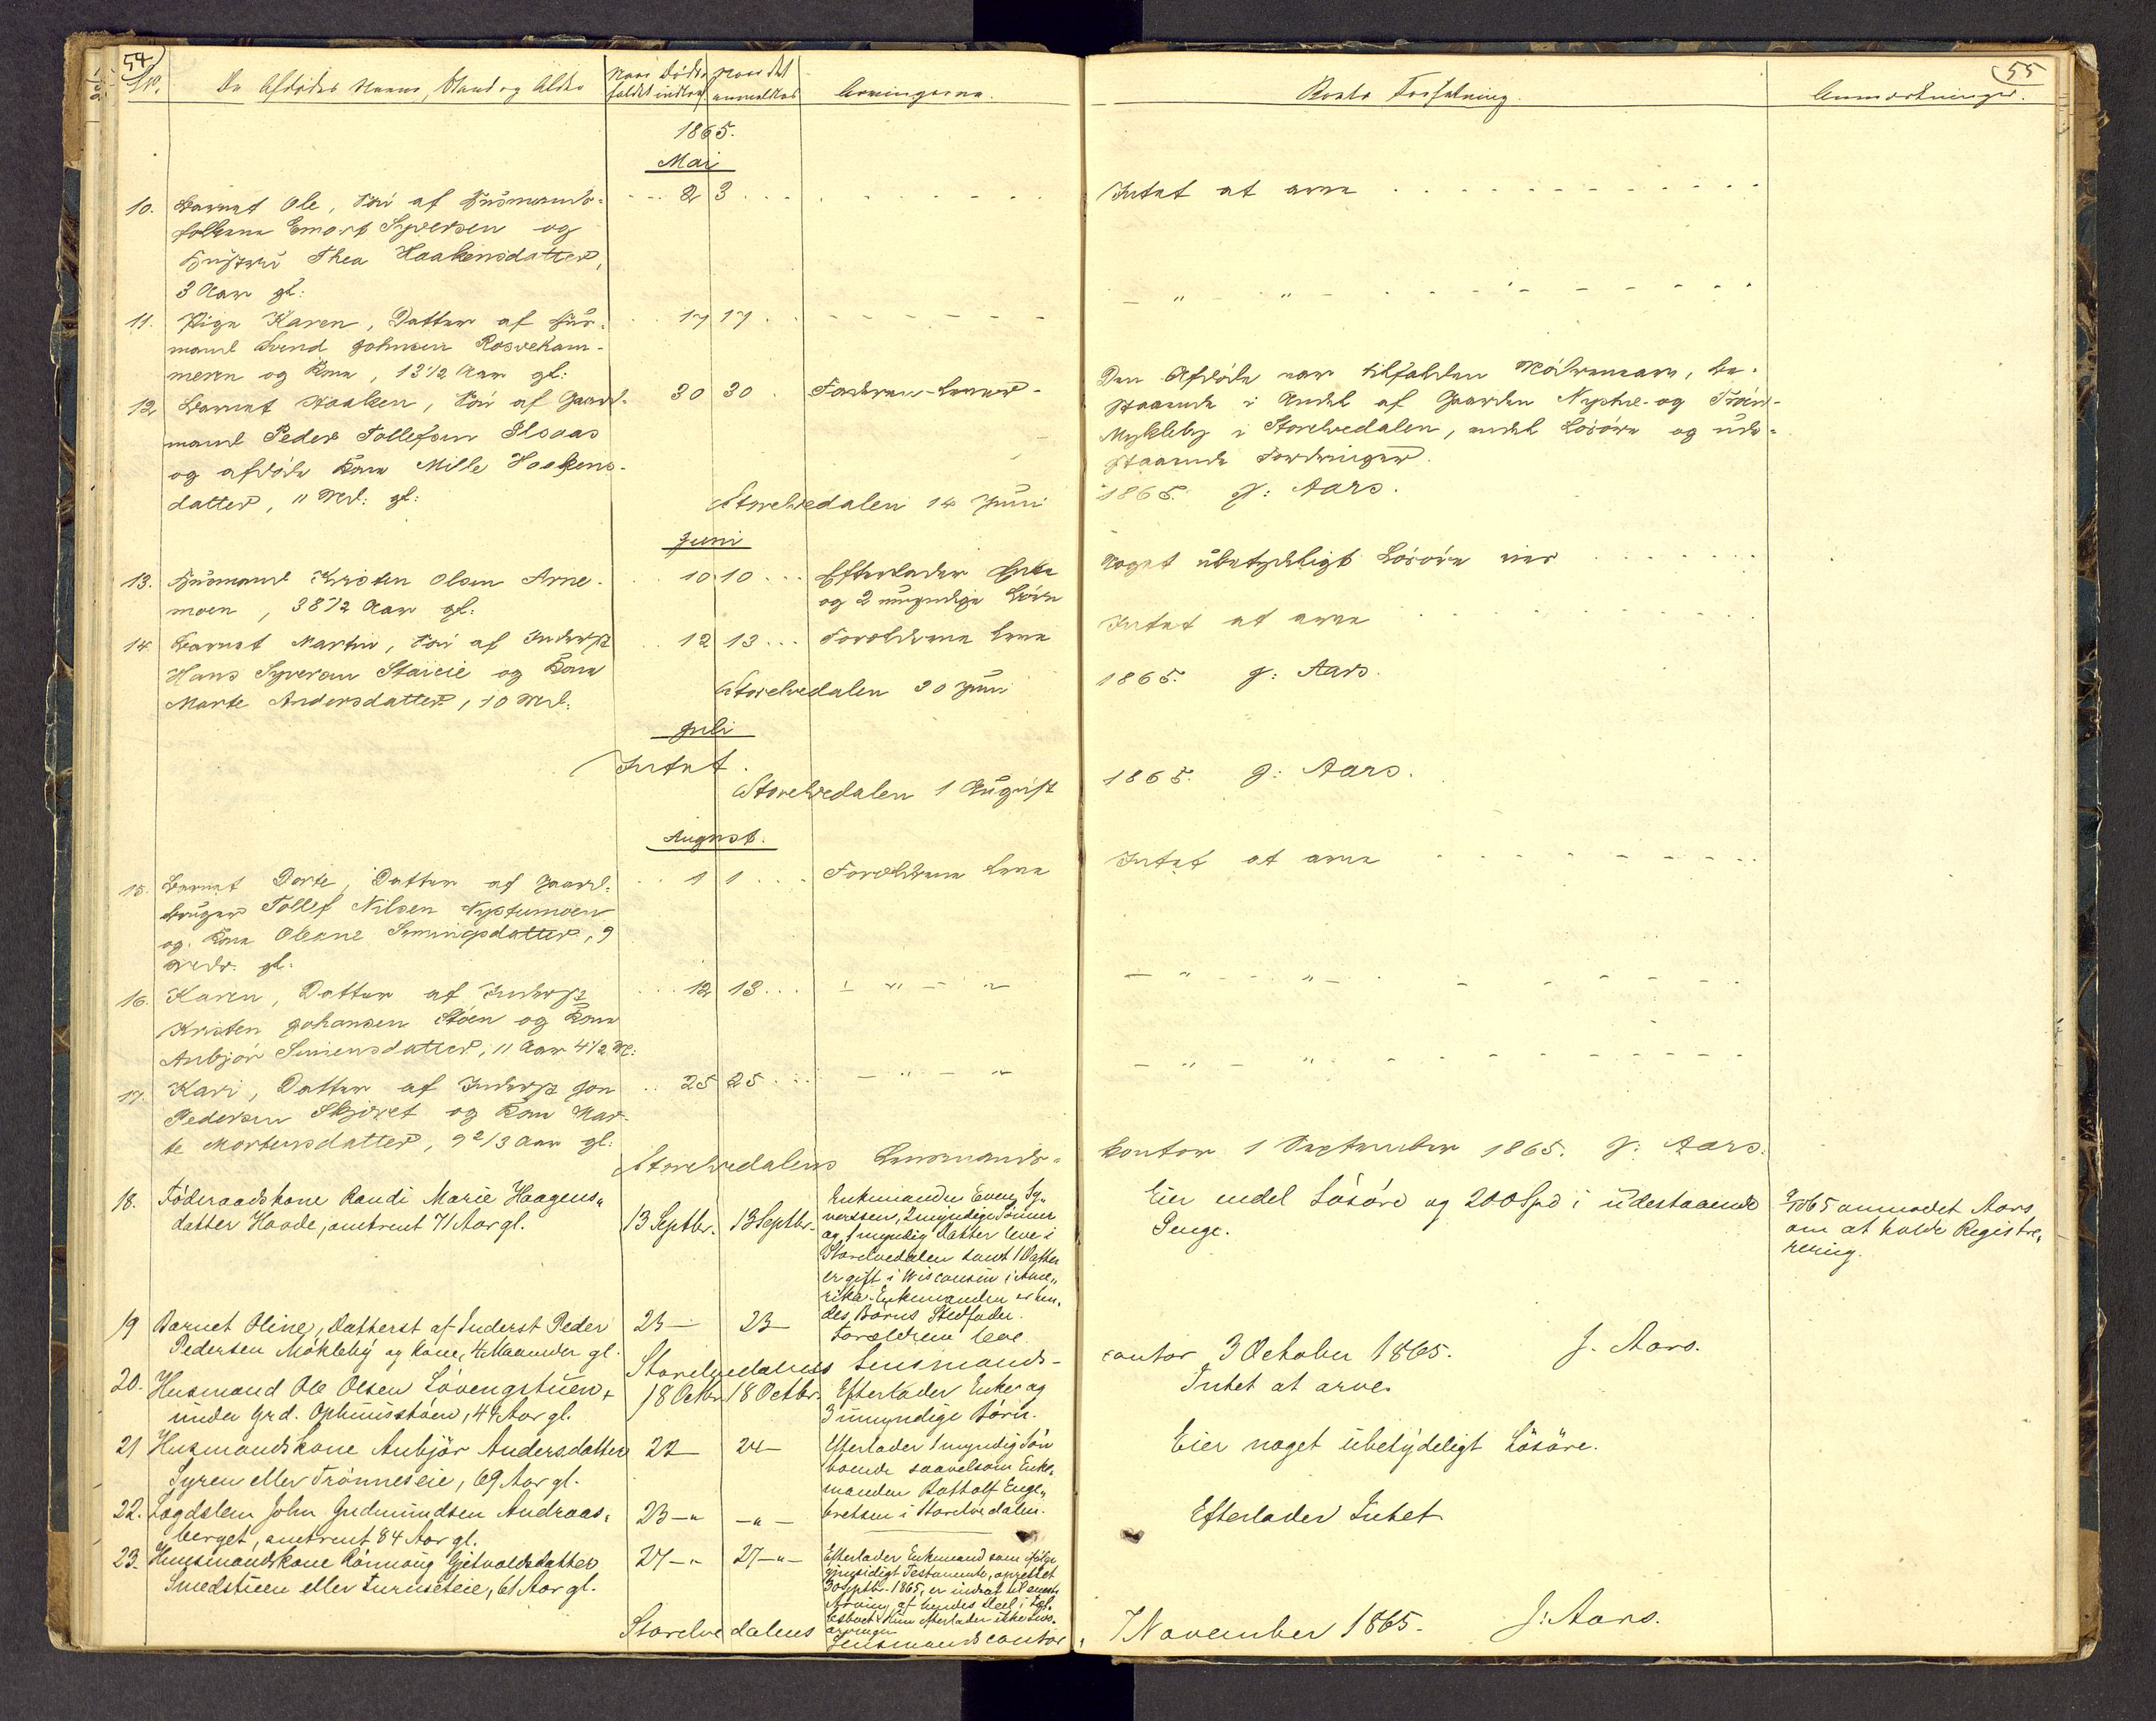 54
No.
De Afdødes Navne, Stand og Alder
Naar Døds-
faldet indtraf
Naar det
anmeldtes
Arvingerne.
1865.
Mai
10. Barnet Ole, Søn af Husmands-
folkene Emort Syversen og
Hustru Thea Haakensdatter,
3 Aar gl:
2 3
11. Pige Karen, Datter af Hus-
mand Svend Johnsen Rosvekam-
meren og Kone, 13 1/2 Aar gl:
17 17
12 Barnet Haaken, Søn af Gaard-
mand Peder Tollefsen
og afdøde Kone Mille Haakens-
datter, 11 Md: gl:
30 30 Faderen lever
Storelvedalen 14 Juni
Juni
13. Husmand Kristen Olsen Arne-
moen, 38 1/2 Aar gl:
10 10 Efterlader Enke
og 2 umyndige Børn
14. Barnet Martin, Søn af Inderst
Hans Syversen Staieie og Kone
Marte Andersdatter, 10 Md:
12 13 Forældrene leve
Storelvedalen 30 Juni
Juli
Intet.
Storelvedalen 1 August
August.
15. Barnet Dorte, Datter af Gaard-
bruger Tollef Nilsen Nystumoen
og Kone Oleane Simingsdatter, 9
Mdr. gl:
1 1 Forældrene leve
16. Karen, Datter af Inderst
Kristen Johansen Støen og Kone
Anbjør Simensdatter, 11 Aar 4 1/2 M:
12 13 - " - "
17. Kari, Datter af Inderst Jon
Pedersen Skjøret og Kone Mar-
te Mortensdatter, 9 2/3 Aar gl:
25 25 - " - "
Storelvedalens Lensmands-
18. Föderaadskone Randi Marie Haagens-
datter Hovde, omtrent 71 Aar gl.
13 Septbr. 13 Septbr.
Enkemanden Even Sy-
versen, 2 myndige Sønner
og 1 myndig Datter leve i
Storelvedalen samt 1 Datter
er gift i Wisconsin i Ame-
rika. Enkemanden er hen-
des Børns Stedfader.
19 Barnet Oline, Datter af Inderst Peder
Pedersen Möklebÿ og Kone, 4 Maaneder gl.
23 — 23 — Forældrene leve.
Storelvedalens Lensmands-
20. Husmand Ole Olsen Lövengstuen
under Grd. Ophuusstöen, 44 Aar gl.
18 Octbr. 18 Octbr. Efterlader Enke og
3 umyndige Börn.
21 Husmandskone Anbjör Andersdatter
Syren eller Trönneseie, 69 Aar gl.
22 — 24 — Efterlader 1 myndig Sön
boende saavelsom Enke-
manden Bottolf Enge-
bretsen i Storelvedalen.
22. Lægdslem John Gudmundsen Andraas-
berget, omtrent 84 Aar gl.
23 — " — " —
23. Huusmandskone Rönnoug Gjetvoldsdatter
Smedstuen eller Furuseteie, 61 Aar gl.
27 — " 27 — " — Efterlader Enkemand som ifölge
gjensidigt Testamente, oprettet
30 Septbr. 1865, er indsat til eneste
Arving af hendes Deel i Fæl-
lesboet. Hun efterlader ikke Livs-
arvinger
Storelvedalens Lensmandscontor,
55
Boets Forfatning.
Anmærkninger.
Intet at arve
- " - " -
Den Afdøde var tilfalden Mødrenearv, be-
staaende i Andel af Gaarden Nystu- og
Mykleby i Storelvedalen, endel Løsøre og ude-
staaende Fordringer.
1865. J: Aars.
Noget ubetydeligt Løsøre eier
Intet at arve
1865. J: Aars.
1865. J: Aars.
Intet at arve
- " - " -
- " - " -
kontor 1 September 1865. J: Aars.
Eier endel Lösöre og 200 Spd i udestaaende
Penge.
65 anmodet Aars
om at holde Registre-
rering.
contor 3 October 1865. J. Aars.
Intet at arve.
Eier noget ubetydeligt Lösöre.
Efterlader Intet
7 November 1865. J: Aars.